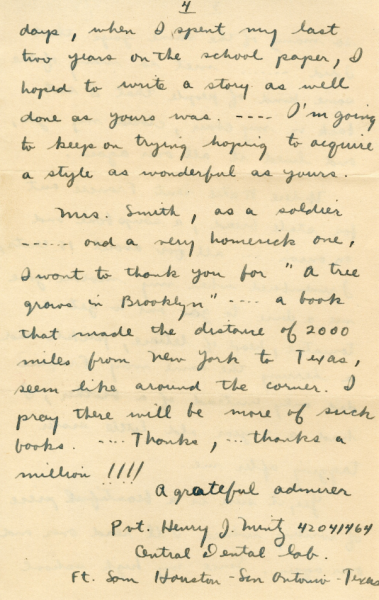 4
days, when I spent my last
two years on the school paper, I
hoped to write a story as well
done as yours was. ---- I'm going
to keep on trying hoping to acquire
a style as wonderful as yours.
Mrs. Smith, as a soldier
------ and a very homesick one,
I want to thank you for "A tree
grows in Brooklyn" ---- a book
that made the distance of 2000
miles from New York to Texas,
seem like around the corner. I
pray there will be more of such
books. ---- Thanks, ... thanks a
million !!!!
A grateful admirer
Pvt. Henry J. Mintz 42041464
Central Dental Lab.
Ft. Sam Houston - San Antonio - Texas